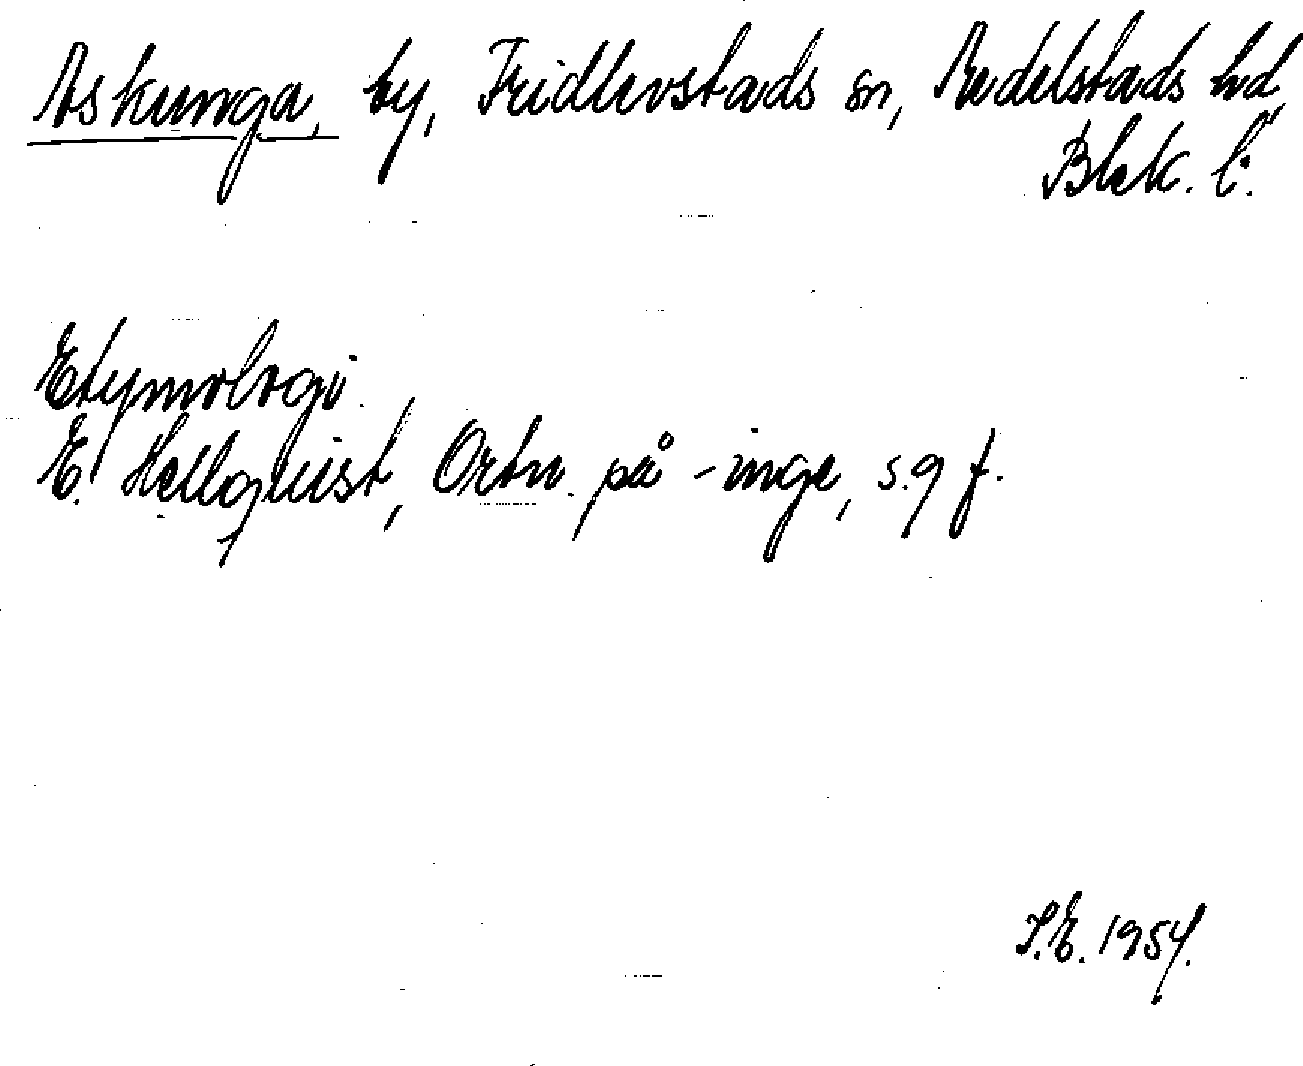 Askunga, by, Fridlevstads sn, Medelstads hd,
Blek. l:
Etymologi
E. Hellquist, Ortn. på -inge, s. 9 f.
S.E. 1954.